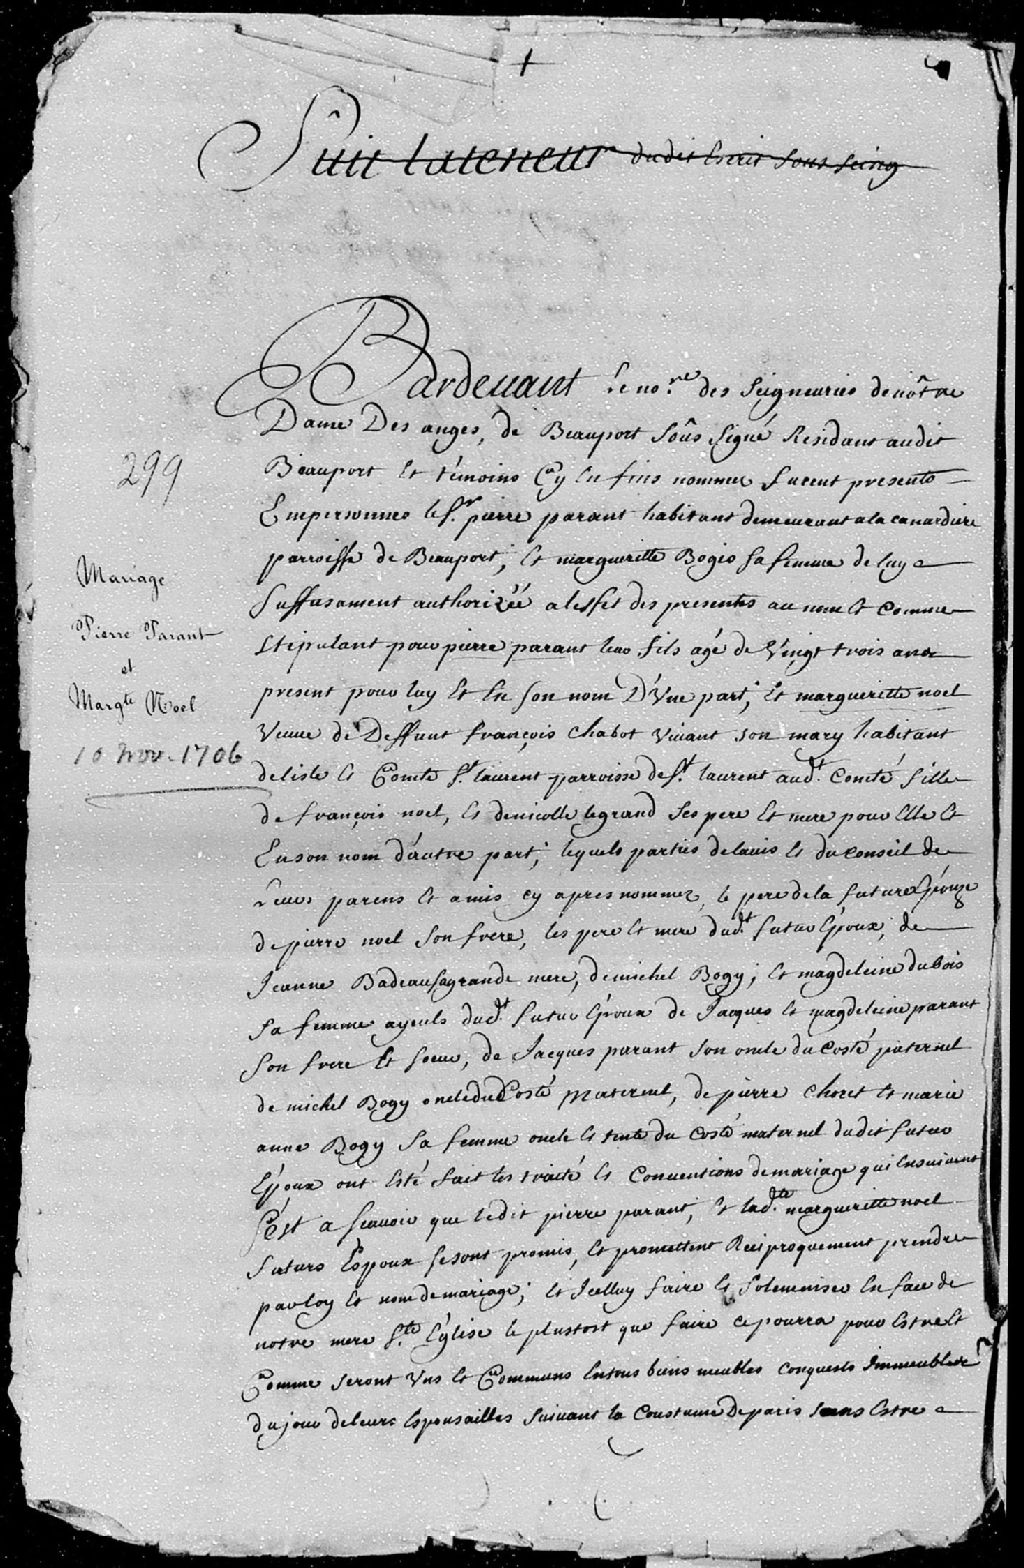 Suit lateneur dudit Escrit sous seing
Pardeuant le no.re des seigneuries de nôtre
Dame Des anges, de Beauport sôus signé Residant audit
Beauport et témoins Cy En fins nommez furent presents
En personnes le s.r pierre parant habitant demeurant a la canardiere
parroisse de Beauport, et marguerittte Bogio sa femme de luy
suffisament authorizéé a leffet des presentes au nom et comme
stipulant pour pierre parant leur fils agé de Vingt trois ans
present pour luy et En son nom D'Vne part; Et margueritte noel
Veuue de Deffunt françois chabot Viuant son mary habitant
de lisle et Comté s.t laurent parroisse de s.t laurent aud.t Comté fille
de françois noel, et de nicolle legrand ses pere et mere pour Elle et
En son nom d'autre part; lequels parties de lauis et du conseil de
leurs parens et amis cy apres nommez, le pere de la future Epouze
de pierre noel son frere, les pere et mere dud.t futur Epoux, de
Jeanne Badeau sa grande mere, de michel Bogy; et magdeleine dubois
sa femme ayeuls dud.t futur Epoux de Jacques et magdeleine parant
son frere et soeur, de Jacques parant son oncle du costé paternel
de michel Bogy oncle du Costé maternel, de pierre choret et marie
anne Bogy sa femme oncle et tente du costé maternel dudit futur
Epoux ont Esté fait les traité et Conuentions de mariage qui Ensuiuent
C'est a scauoir que ledit pierre parant, et lad.te margueritte noel
futurs Espoux se sont promis, et promettent Reciproquement prendre
par loy et nom de mariage; et Icelluy faire et solemniser En face de
notre mere s.te Eglise le plustost que faire ce pourra pour Estre et
Comme seront Vns et Communs En tous biens meubles conquests Immeubles
du jour de leurs Espousailles suiuant la Coustume De paris sans Estre
299
Mariage
Pierre Parant
et
Margte Noel
10 Nov. 1706